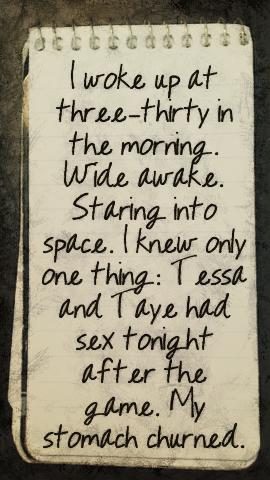 I woke up at
three-thirty in
the morning.
Wide awake.
Staring into
space. I knew only
one thing: Tessa
and Taye had
sex tonight
after the
game. My
stomach churned.